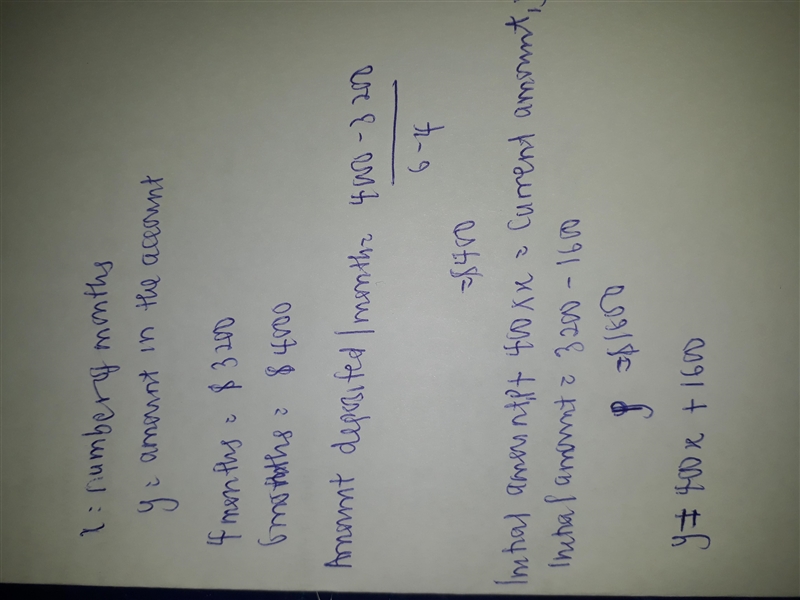 x = number of months
y = amount in the account
4 months = $ 3200
6 months = $ 4000
Amount deposited / month = 4000 - 3200
6 - 4
= $400
Initial amount + 400 x x = Current amount
Initial amount = 3200 - 1600
= $1600
y = 400x + 1600